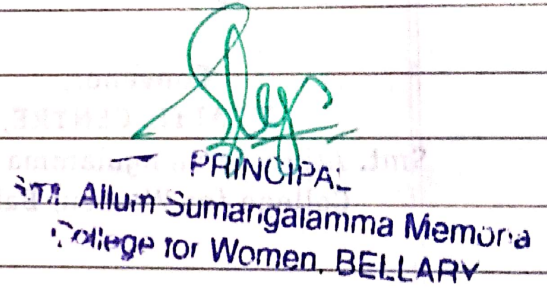 PRINCIPAL
Smt. Allum Sumangalamma Memorial
College for Women, BELLARY